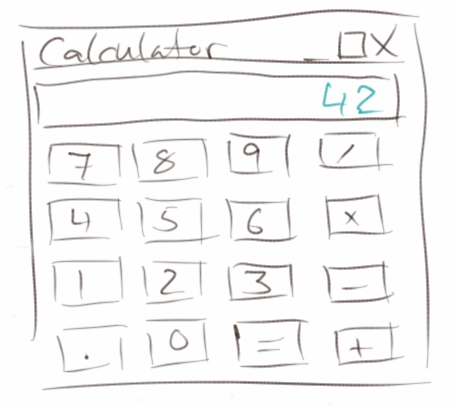 Calculator _ □ X
42
7 8 9 /
4 5 6 x
1 2 3 -
. 0 = +